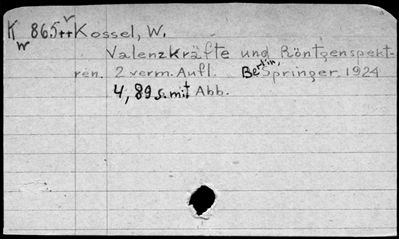 K 865++ Kossel, W.
w
Valenzkräfte und Röntgenspekt-
ren. 2 verm. Aufl. Berlin, Springer 1924
4, 89 s. mit Abb.